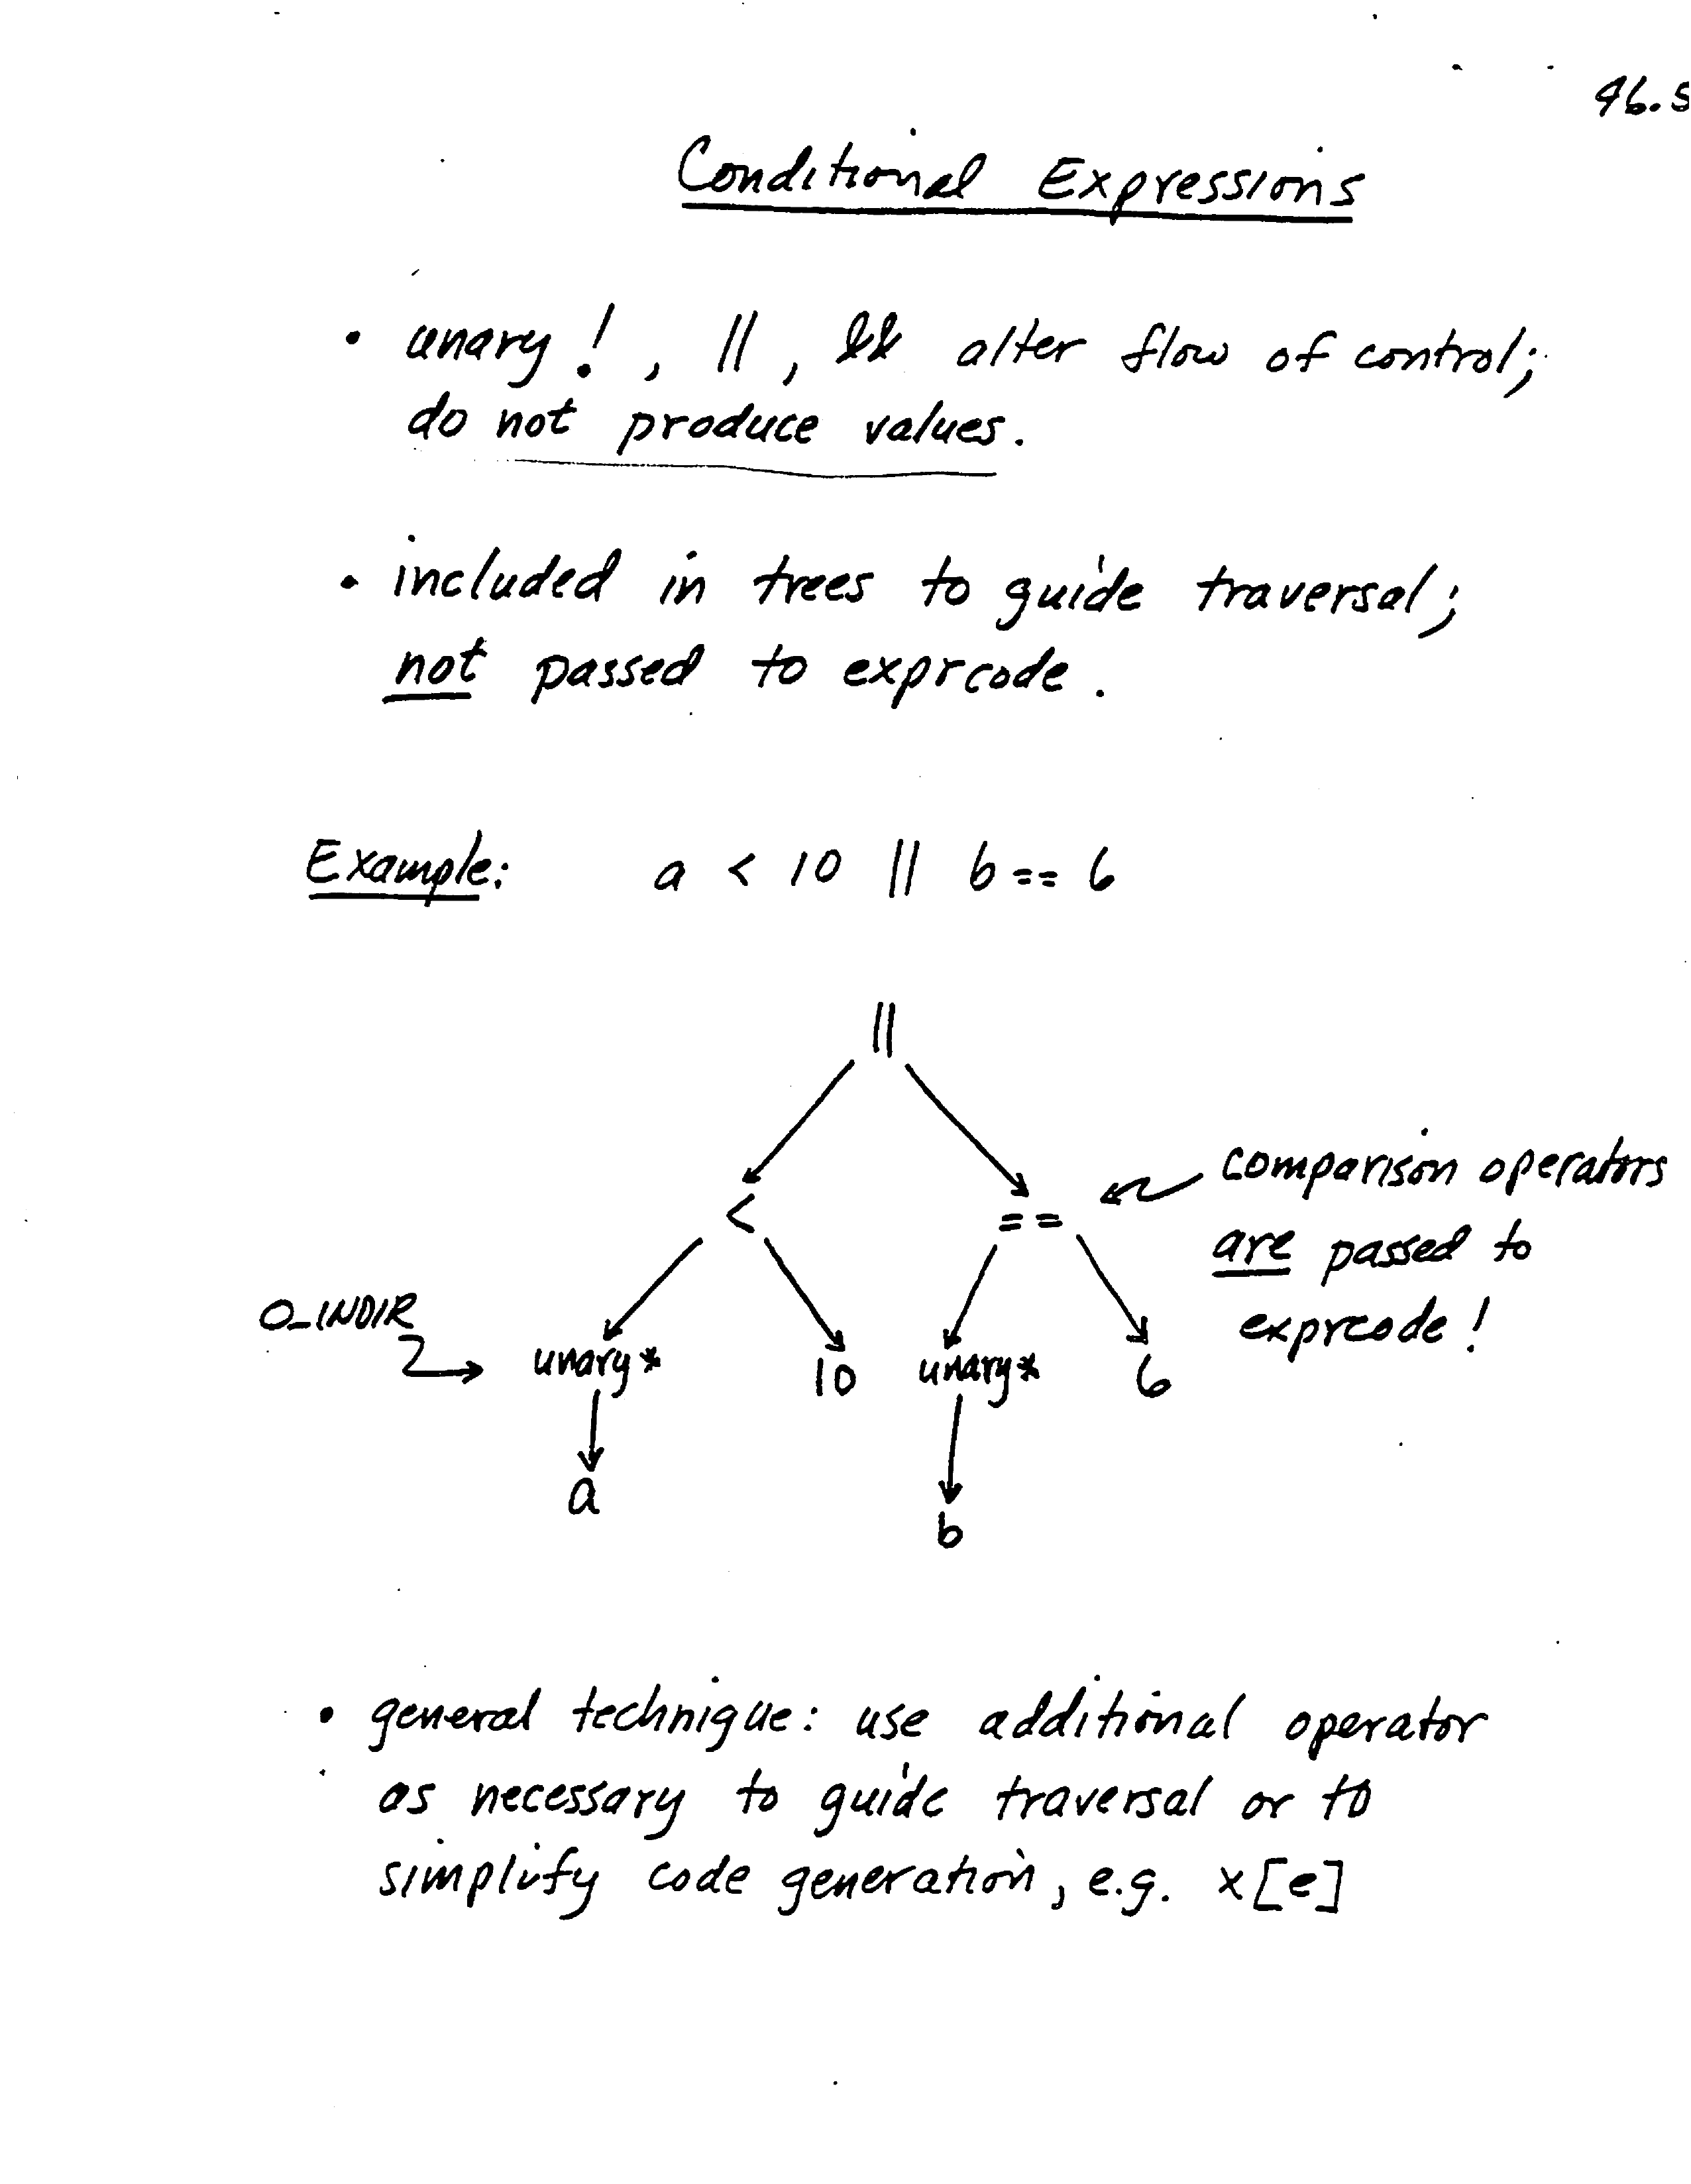 46.5
Conditional Expressions
• unary ! , || , && alter flow of control;
do not produce values.
• included in trees to guide traversal;
not passed to exprcode.
Example: a < 10 || b == 6
||
comparison operators
< ==
are passed to
O_INDIR
exprcode!
unary* 10 unary* 6
a
b
• general technique: use additional operator
as necessary to guide traversal or to
simplify code generation, e.g. x[e]